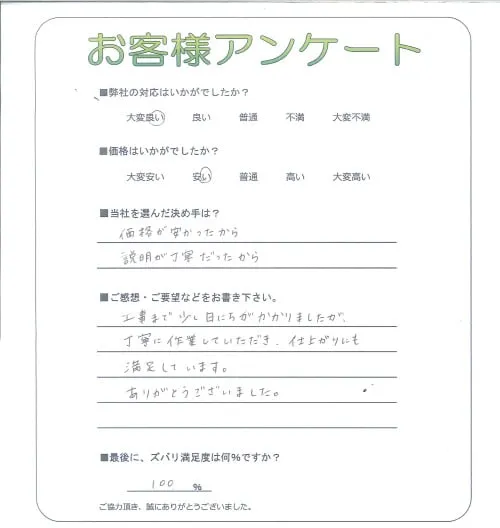 お客様アンケート
■弊社の対応はいかがでしたか？
大変良い 良い 普通 不満 大変不満
■価格はいかがでしたか？
大変安い 安い 普通 高い 大変高い
■当社を選んだ決め手は？
価格が安かったから
説明が丁寧だったから
■ご感想・ご要望などをお書き下さい。
工事まで少し日にちがかかりましたが、
丁寧に作業していただき、仕上がりにも
満足しています。
ありがとうございました。
■最後に、ズバリ満足度は何％ですか？
100 ％
ご協力頂き、誠にありがとうございました。